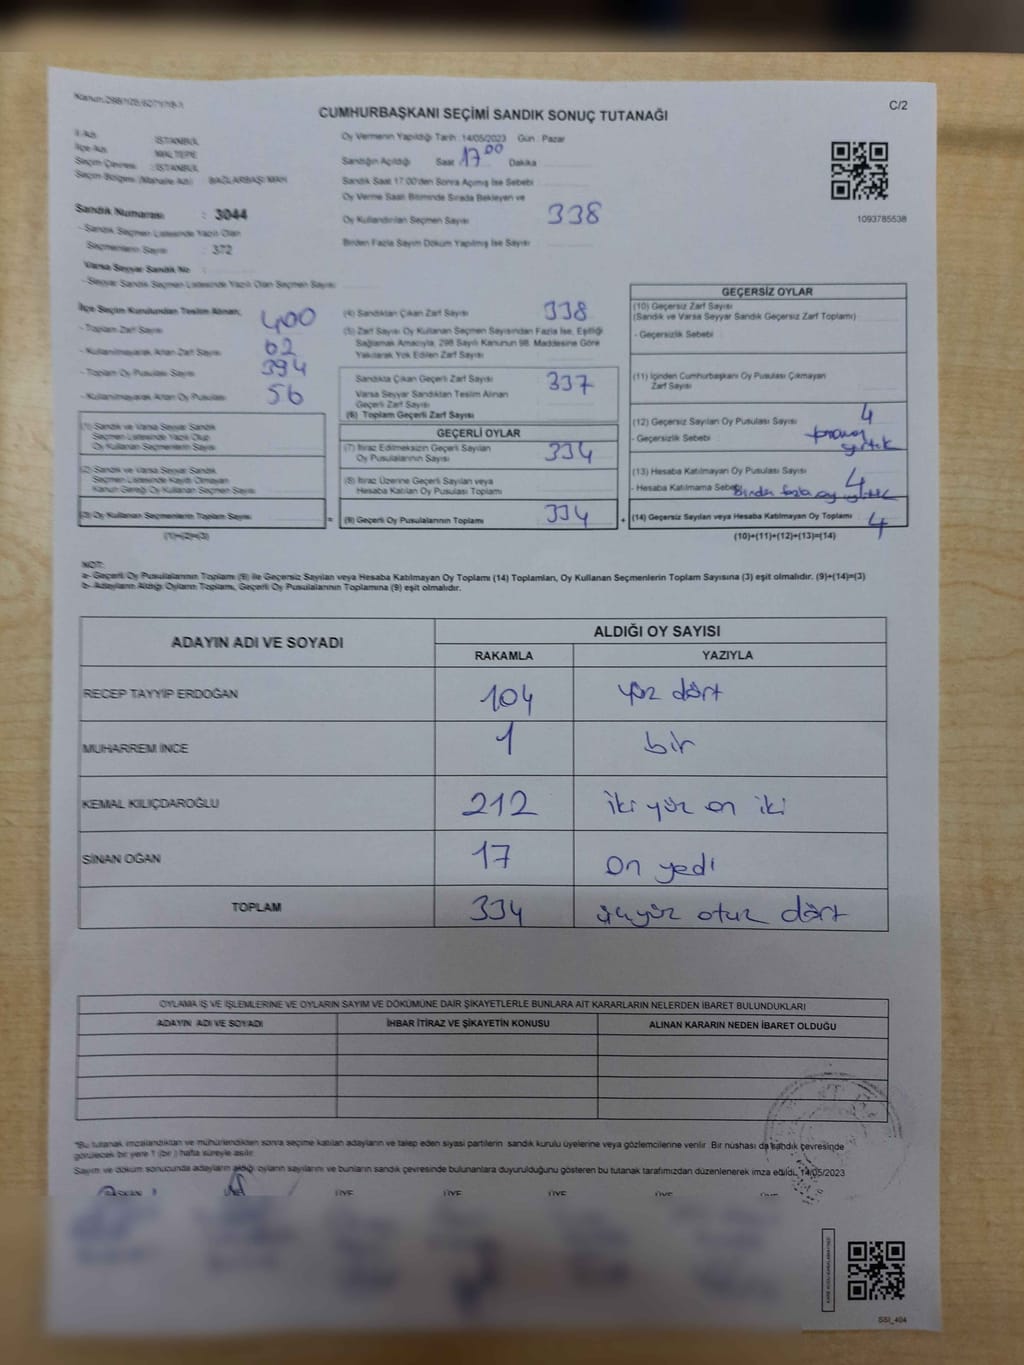 C/2
CUMHURBAŞKANI SEÇİMİ SANDIK SONUÇ TUTANAĞI
İl Adı : İSTANBUL
İlçe Adı : MALTEPE
Seçim Çevresi : İSTANBUL
Seçim Bölgesi (Mahalle Adı) : BAĞLARBAŞI MAH
Sandık Numarası : 3044
- Sandık Seçmen Listesinde Yazılı Olan
Seçmenlerin Sayısı : 372
Varsa Seyyar Sandık No :
- Seyyar Sandık Seçmen Listesinde Yazılı Olan Seçmen Sayısı
Oy Vermenin Yapıldığı Tarih :14/05/2023 Gün : Pazar
Sandığın Açıldığı Saat 17 00 Dakika
Sandık Saat 17.00'den Sonra Açılmış İse Sebebi
Oy Verme Saati Bitiminde Sırada Bekleyen ve
Oy Kullandırılan Seçmen Sayısı 338
Birden Fazla Sayım Döküm Yapılmış İse Sayısı
1093785538
İlçe Seçim Kurulundan Teslim Alınan;
- Toplam Zarf Sayısı 400
- Kullanılmayarak Artan Zarf Sayısı 62
- Toplam Oy Pusulası Sayısı 394
- Kullanılmayarak Artan Oy Pusulası 56
(1) Sandık ve Varsa Seyyar Sandık
Seçmen Listesinde Yazılı Olup
Oy Kullanan Seçmenlerin Sayısı
(2) Sandık ve Varsa Seyyar Sandık
Seçmen Listesinde Kayıtlı Olmayan
Kanun Gereği Oy Kullanan Seçmen Sayısı
(3) Oy Kullanan Seçmenlerin Toplam Sayısı
(1)+(2)=(3)
(4) Sandıktan Çıkan Zarf Sayısı 338
(5) Zarf Sayısı Oy Kullanan Seçmen Sayısından Fazla İse, Eşitliği
Sağlamak Amacıyla, 298 Sayılı Kanunun 98. Maddesine Göre
Yakılarak Yok Edilen Zarf Sayısı
Sandıkta Çıkan Geçerli Zarf Sayısı 337
Varsa Seyyar Sandıktan Teslim Alınan
Geçerli Zarf Sayısı
(6) Toplam Geçerli Zarf Sayısı
GEÇERLİ OYLAR
(7) İtiraz Edilmeksizin Geçerli Sayılan
Oy Pusulalarının Sayısı 334
(8) İtiraz Üzerine Geçerli Sayılan veya
Hesaba Katılan Oy Pusulası Toplamı
= (9) Geçerli Oy Pusulalarının Toplamı 334 +
GEÇERSİZ OYLAR
(10) Geçersiz Zarf Sayısı
(Sandık ve Varsa Seyyar Sandık Geçersiz Zarf Toplamı)
- Geçersizlik Sebebi
(11) İçinden Cumhurbaşkanı Oy Pusulası Çıkmayan
Zarf Sayısı
(12) Geçersiz Sayılan Oy Pusulası Sayısı 4
- Geçersizlik Sebebi
yırtık
(13) Hesaba Katılmayan Oy Pusulası Sayısı 4
- Hesaba Katılmama Sebebi Birden fazla oy
(14) Geçersiz Sayılan veya Hesaba Katılmayan Oy Toplamı 4
(10)+(11)+(12)+(13)=(14)
NOT:
a- Geçerli Oy Pusulalarının Toplamı (9) ile Geçersiz Sayılan veya Hesaba Katılmayan Oy Toplamı (14) Toplamları, Oy Kullanan Seçmenlerin Toplam Sayısına (3) eşit olmalıdır. (9)+(14)=(3)
b- Adayların Aldığı Oyların Toplamı, Geçerli Oy Pusulalarının Toplamına (9) eşit olmalıdır.
ADAYIN ADI VE SOYADI ALDIĞI OY SAYISI
RAKAMLA YAZIYLA
RECEP TAYYİP ERDOĞAN 104 yüz dört
MUHARREM İNCE 1 bir
KEMAL KILIÇDAROĞLU 212 iki yüz on iki
SİNAN OĞAN 17 on yedi
TOPLAM 334 üçyüz otuz dört
OYLAMA İŞ VE İŞLEMLERİNE VE OYLARIN SAYIM VE DÖKÜMÜNE DAİR ŞİKAYETLERLE BUNLARA AİT KARARLARIN NELERDEN İBARET BULUNDUKLARI
ADAYIN ADI VE SOYADI İHBAR İTİRAZ VE ŞİKAYETİN KONUSU ALINAN KARARIN NEDEN İBARET OLDUĞU
*Bu tutanak imzalandıktan ve mühürlendikten sonra seçime katılan adayların ve talep eden siyasi partilerin sandık kurulu üyelerine veya gözlemcilerine verilir. Bir nüshası da sandık çevresinde
görülecek bir yere 1 (bir ) hafta süreyle asılır.
Sayım ve döküm sonucunda adayların aldığı oyların sayılarını ve bunların sandık çevresinde bulunanlara duyurulduğunu gösteren bu tutanak tarafımızdan düzenlenerek imza edildi. 14/05/2023
BAŞKAN ÜYE ÜYE ÜYE ÜYE ÜYE
SSI_404